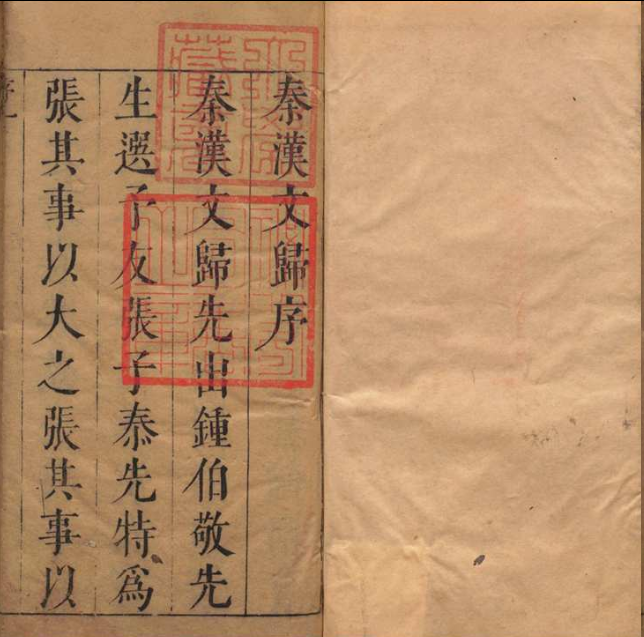 秦漢文歸序
秦漢文歸先出鍾伯敬先
生選予友張子泰先特爲
張其事以大之張其事以